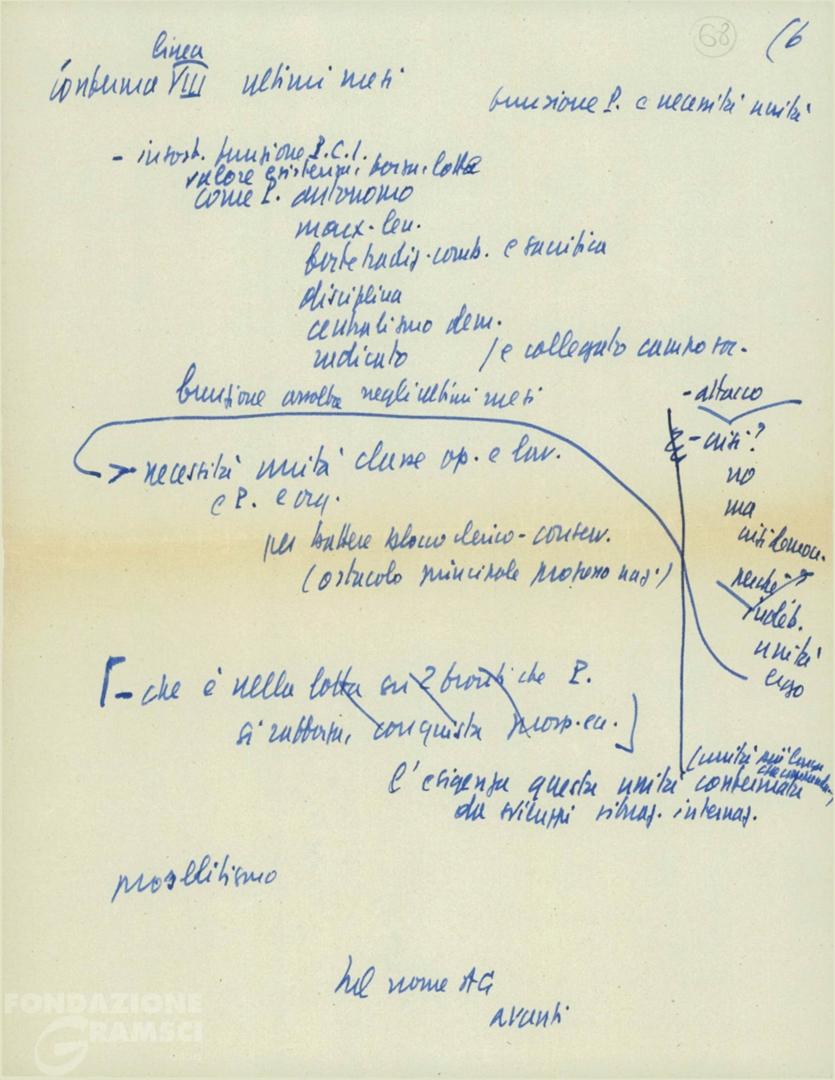 68
(6
linea
conferma VIII ultimi mesi
funzione P. e necessità unità
- insost. funzione P.C.I.
valore esistenza, forza, lotta
come P. autonomo
marx-len.
forte tradiz. comb. e sacrifica
disciplina
centralismo dem.
radicato / e collegato campo soc.
funzione assolta negli ultimi mesi
→ necessità unità classe op. e lav.
e P. e org.
per battere blocco clerico-conserv.
(ostacolo principale progresso naz.)
- attacco
- crisi?
no
ma
crisi democr.
perché?
indeb.
unità
ergo
- che è nella lotta su 2 fronti che P.
si rafforza, conquista prosp. ecc.
(unità più larga
l'esigenza questa unità confermata
da sviluppi situaz. internaz.
proselitismo
Nel nome AG
avanti
FONDAZIONE
GRAMSCI